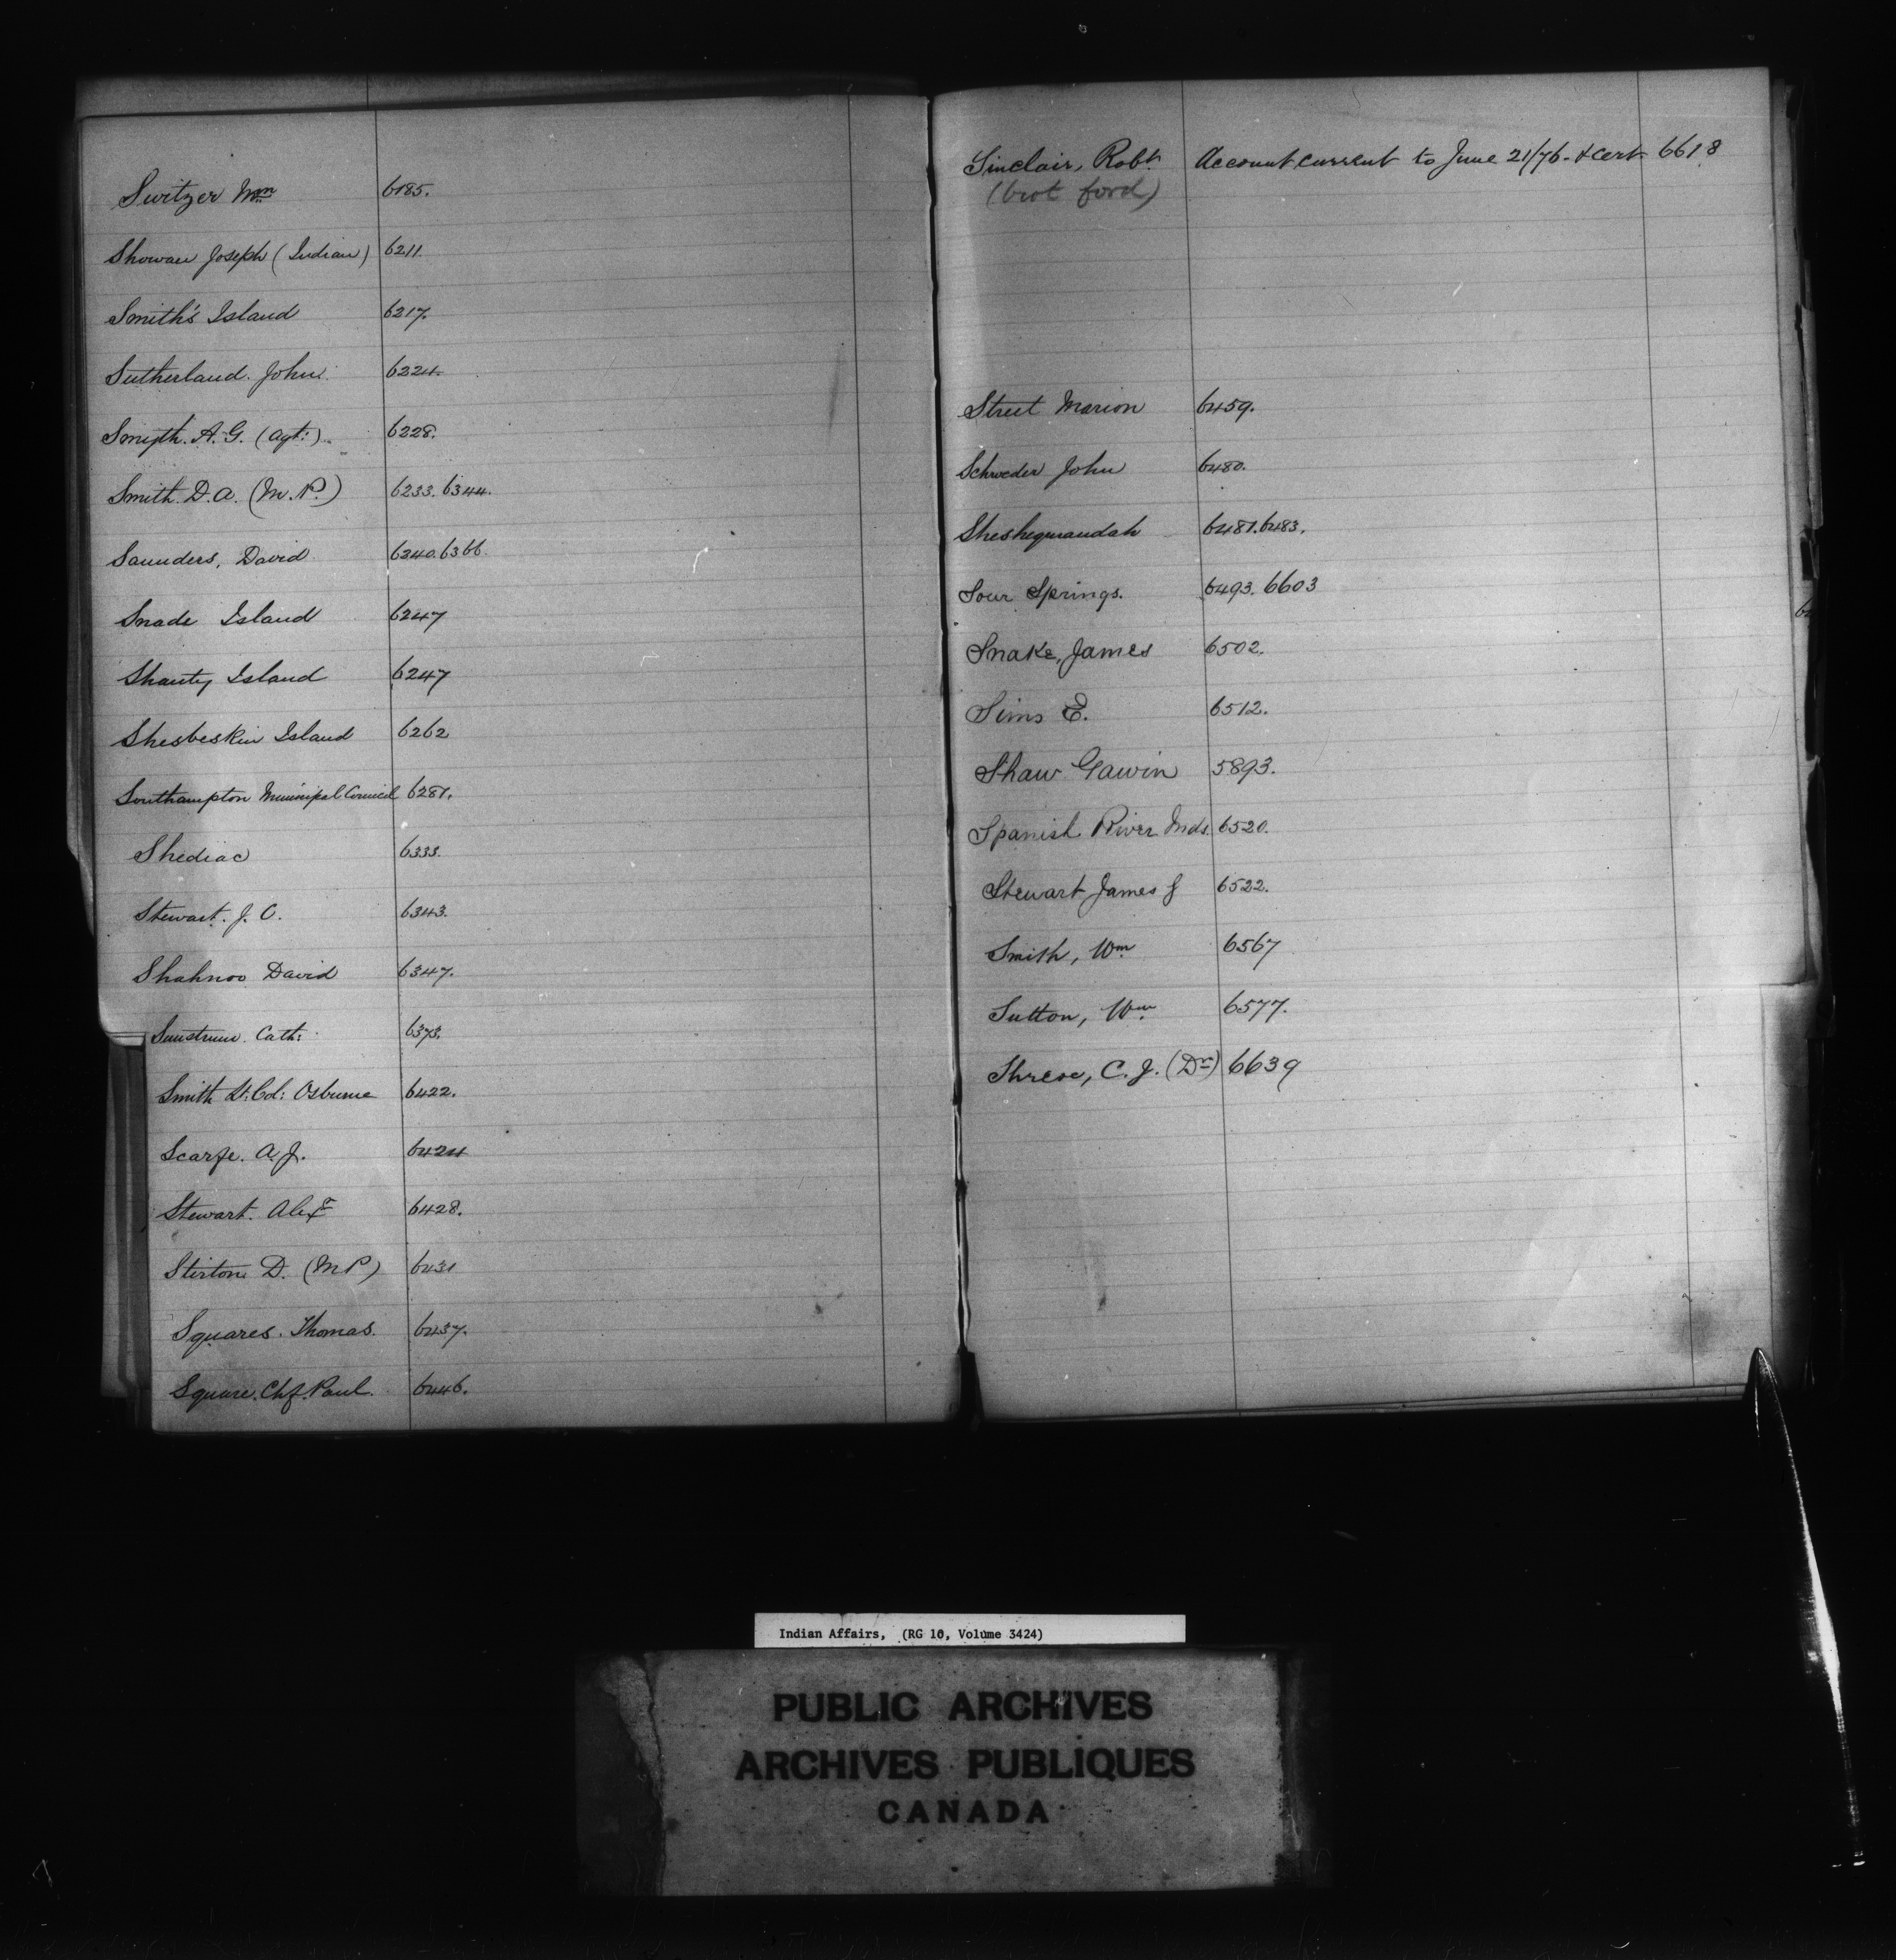 Switzer Wm 6185.
Showan Joseph (Indian) 6211.
Smith's Island 6217.
Sutherland. John. 6224.
Smyth. A. G. (Agt:) 6228.
Smith. D. A. (M. P.) 6233. 6344.
Saunders, David 6240. 6366.
Snade Island 6247
Shanty Island 6247
Shesbeskin Island 6262
Southampton Municipal Council 6281.
Shediac 6333.
Stewart. J. C. 6343.
Shahnoo David 6347.
Cath: 6373.
Smith Lt: Col: Osburne 6422.
Scarfe. A. J. 6424
Stewart. Alexr 6428.
Stirton D. (M P) 6431
Squares. Thomas. 6437.
Square. Chf. Paul. 6446.
Sinclair, Robt Account current to June 21/76. & cert 6618
(brot ford)
Street Marion 6459.
Schweder John 6480.
Sheshegwandah 6481. 6483.
Sour Springs. 6493. 6603
Snake, James 6502.
Sims E. 6512.
Shaw Gawin 5893.
Spanish River Inds. 6520.
Stewart James J 6522.
Smith, Wm 6567
Sutton, Wm 6577.
Shreve, C. J. (Dr) 6639
Indian Affairs, (RG 10, Volume 3424)
PUBLIC ARCHIVES
ARCHIVES PUBLIQUES
CANADA